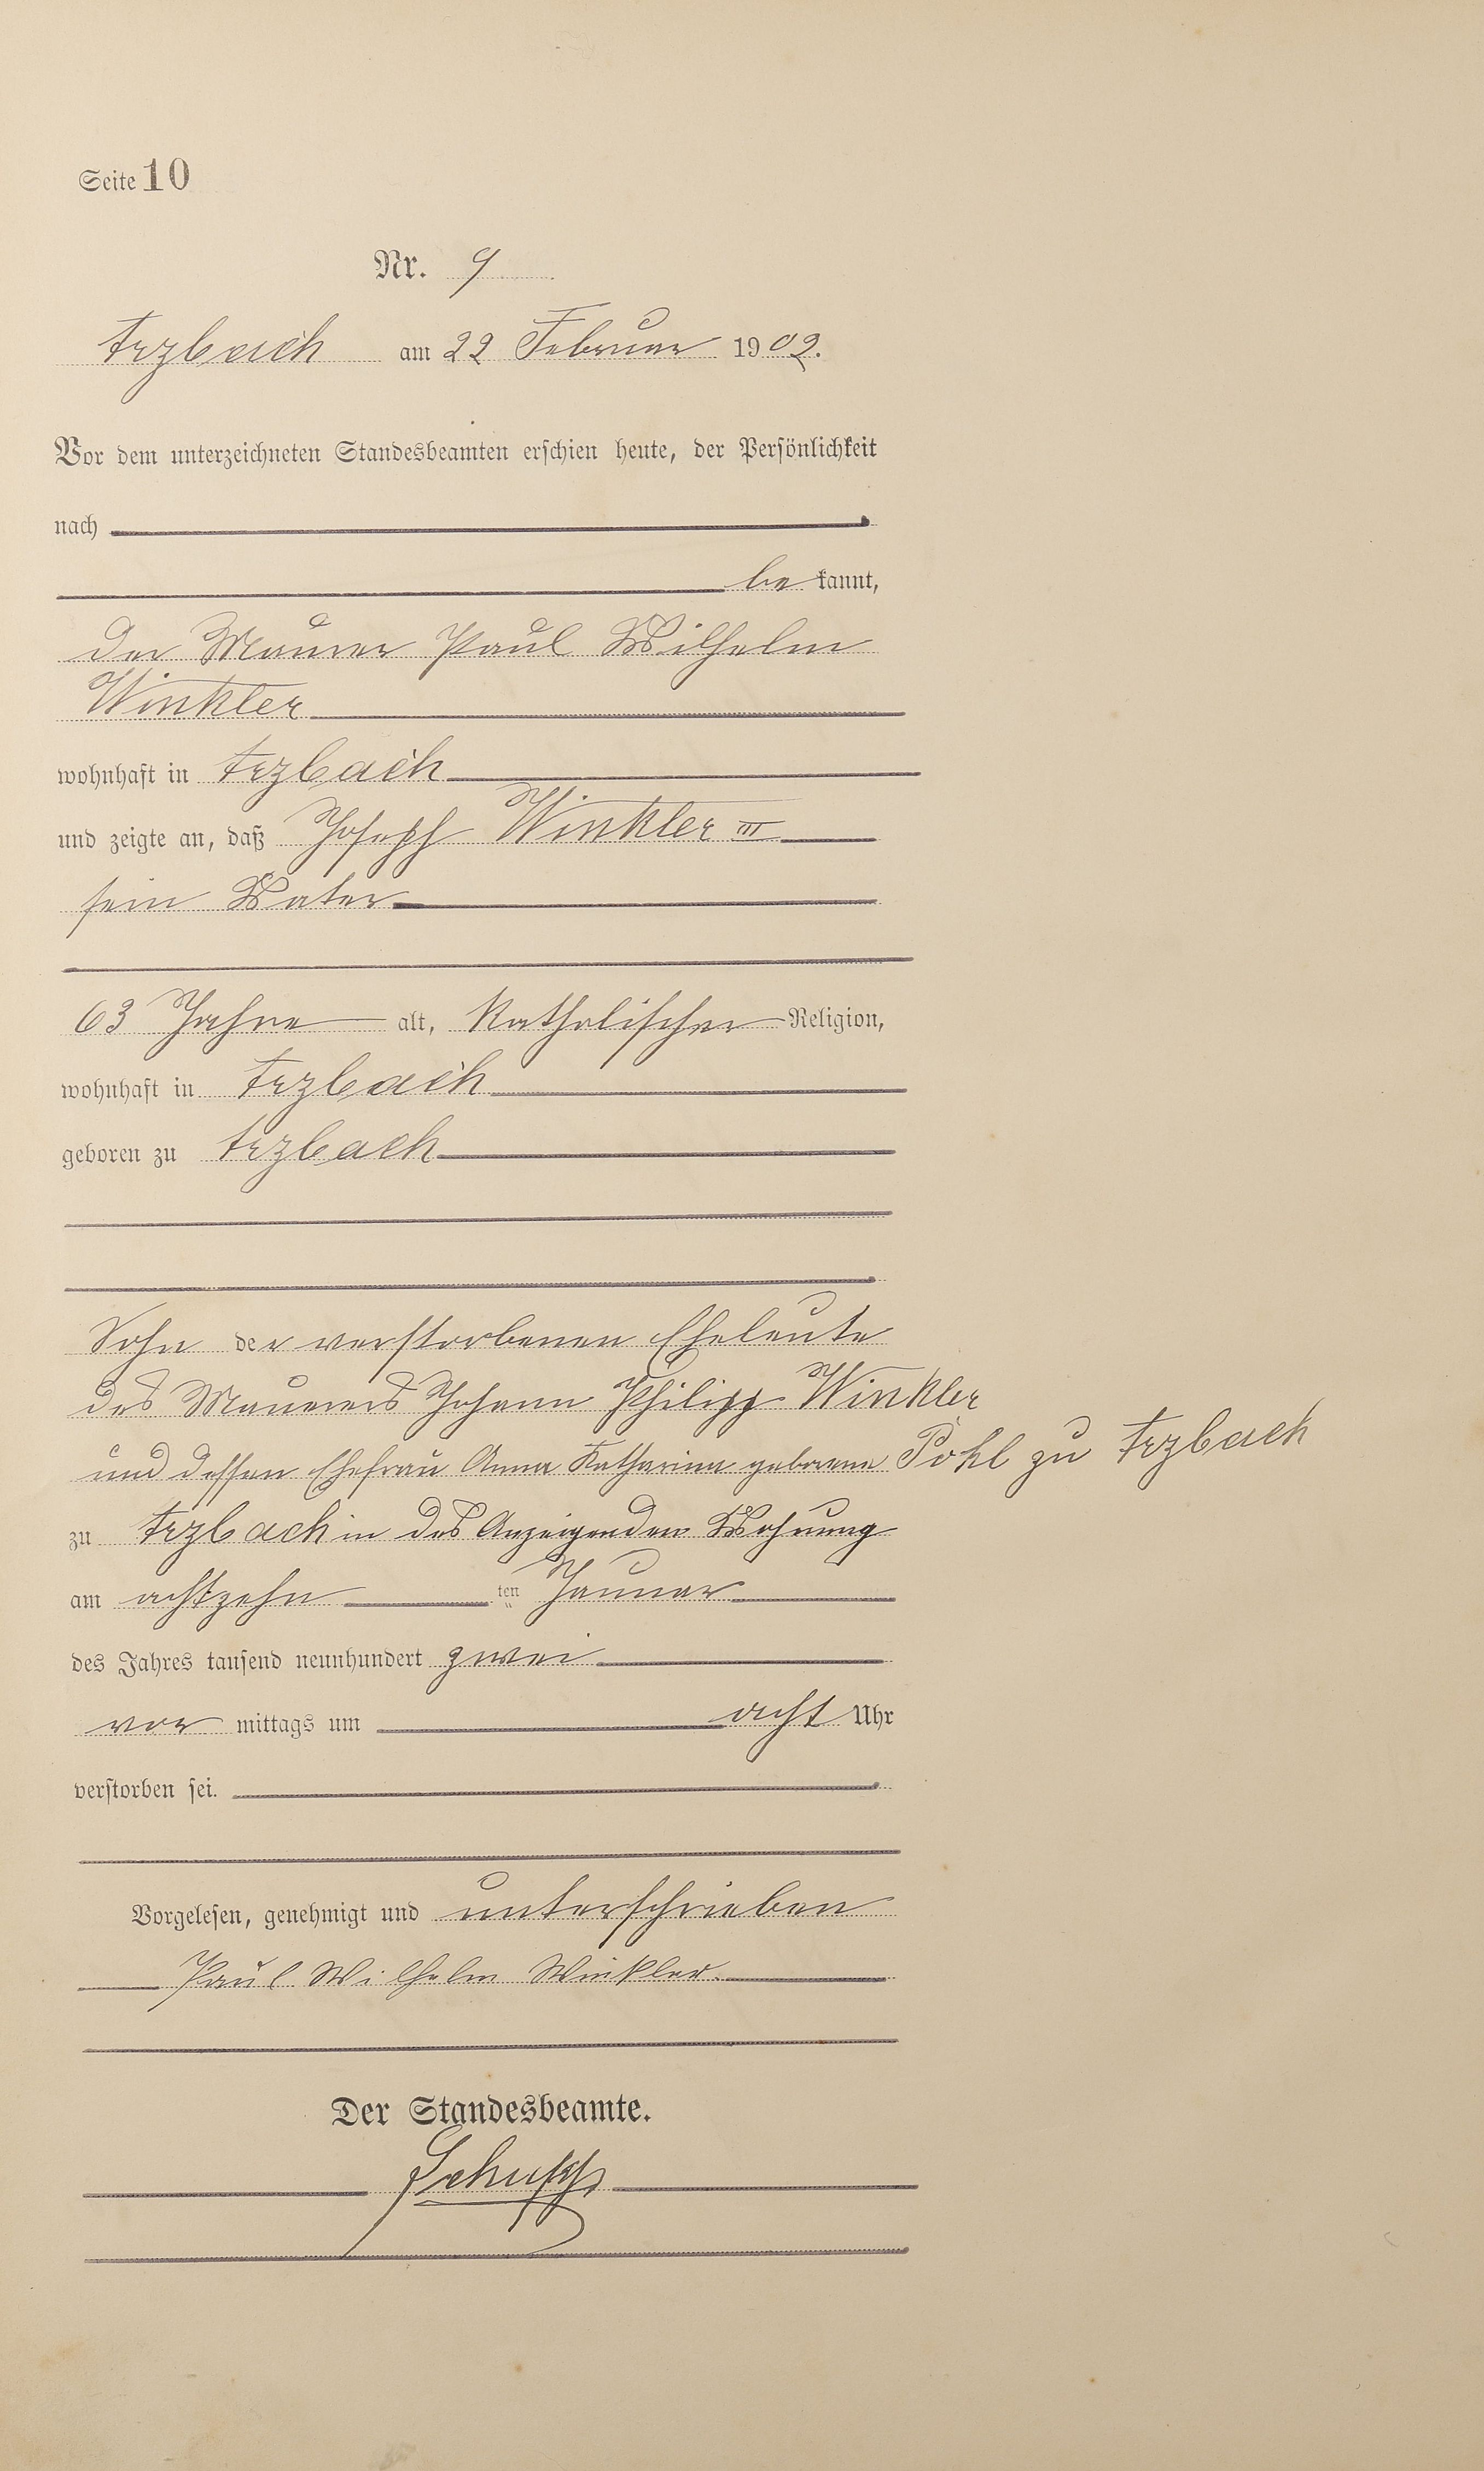 Seite 10
Nr. 9
Erzbach am 22 Februar 1902.
Vor dem unterzeichneten Standesbeamten erschien heute, der Persönlichkeit
nach
be kannt,
der Maurer Paul Wilhelm
Winkler
wohnhaft in Erzbach
und zeigte an, daß Joseph Winkler III
sein Vater
63 Jahre alt, Katholischer Religion,
wohnhaft in Erzbach
geboren zu Erzbach
Sohn der verstorbenen Eheleute
des Maurers Johann Philipp Winkler
und dessen Ehefrau Anna Katharina geborene Pohl zu Erzbach
zu Erzbach in des Anzeigenden Wohnung
am achtzehn ten Januar
des Jahres tausend neunhundert zwei
vor mittags um acht Uhr
verstorben sei.
Vorgelesen, genehmigt und unterschrieben
Paul Wilhelm Winkler.
Der Standesbeamte.